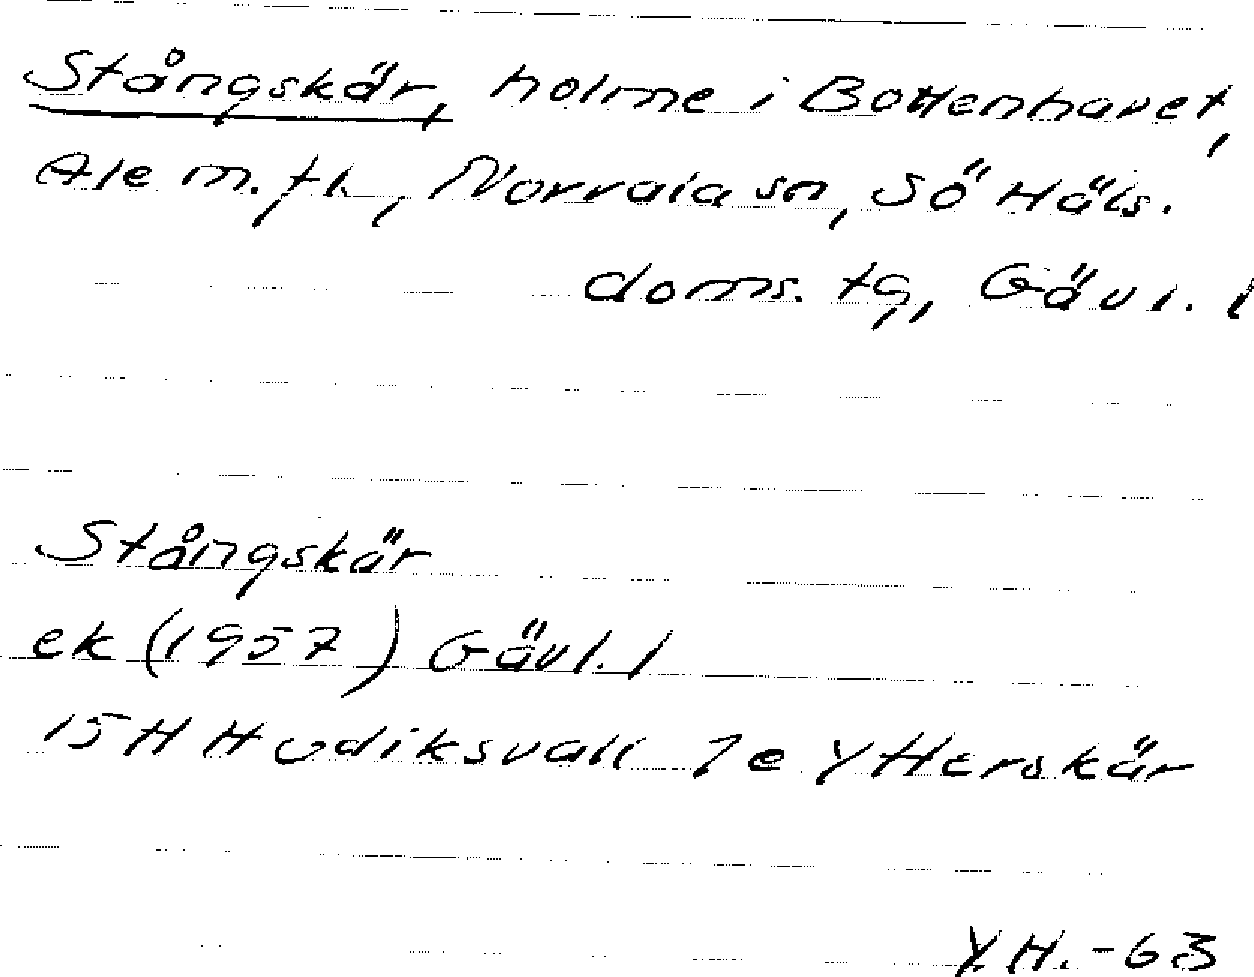 Stångskär, holme i Bottenhavet,
Ale m. fl., Norrala sn, Sö Häls.
doms. tg, Gävl. l
Stångskär
ek (1957) Gävl. l
15H Hudiksvall 7e Ytterskär
Y.H. -63